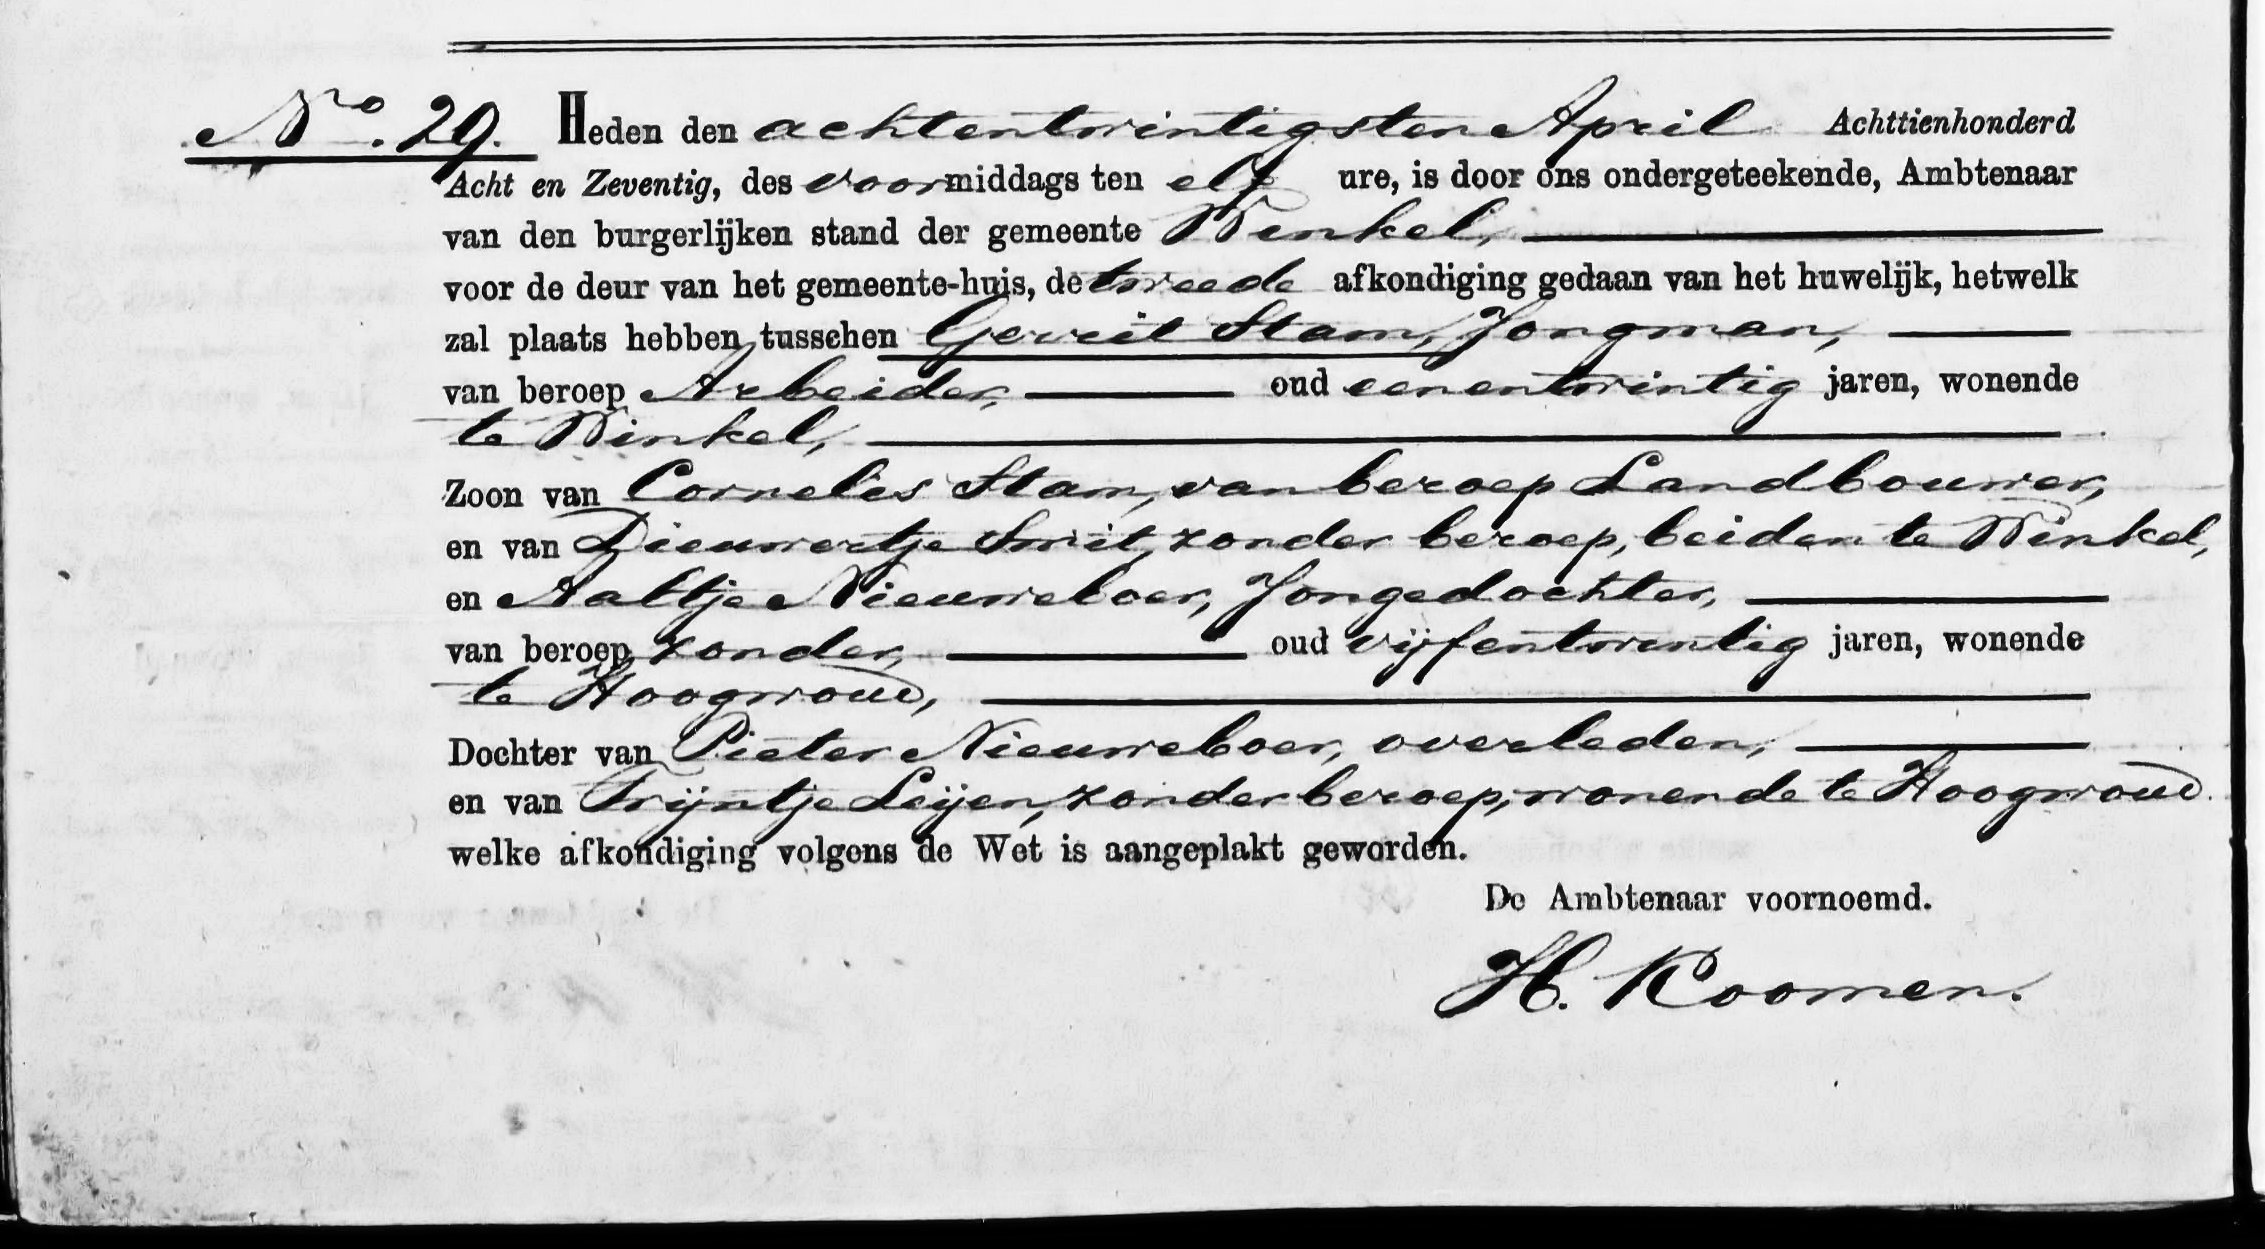 No. 29. Heden den achtentwintigsten April Achttienhonderd
Acht en Zeventig, des voormiddags ten elf ure, is door ons ondergeteekende, Ambtenaar
van den burgerlijken stand der gemeente Winkel,
voor de deur van het gemeente-huis, de tweede afkondiging gedaan van het huwelijk, hetwelk
zal plaats hebben tusschen Gerrit Stam, Jongman,
van beroep Arbeider, oud eenentwintig jaren, wonende
te Winkel,
Zoon van Cornelis Stam, van beroep Landbouwer,
en van Dieuwertje Smit, zonder beroep, beiden te Winkel,
en Aaltje Nieuweboer, Jongedochter,
van beroep zonder, oud vijfentwintig jaren, wonende
te Hoogwoud,
Dochter van Pieter Nieuweboer, overleden,
en van Trijntje Leijen, zonder beroep, wonende te Hoogwoud.
welke afkondiging volgens de Wet is aangeplakt geworden.
De Ambtenaar voornoemd.
H. Koomen.